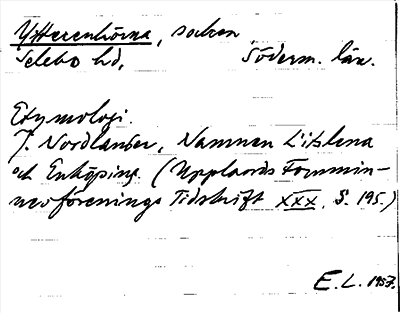 Ytterenhörna, socken
Selebo hd, Söderm. län.
Etymologi.
J. Nordlander, Namnen Lislena
och Enköping. (Upplands Fornmin-
nesförenings Tidskrift XXX, S. 195.)
E.L. 1957.